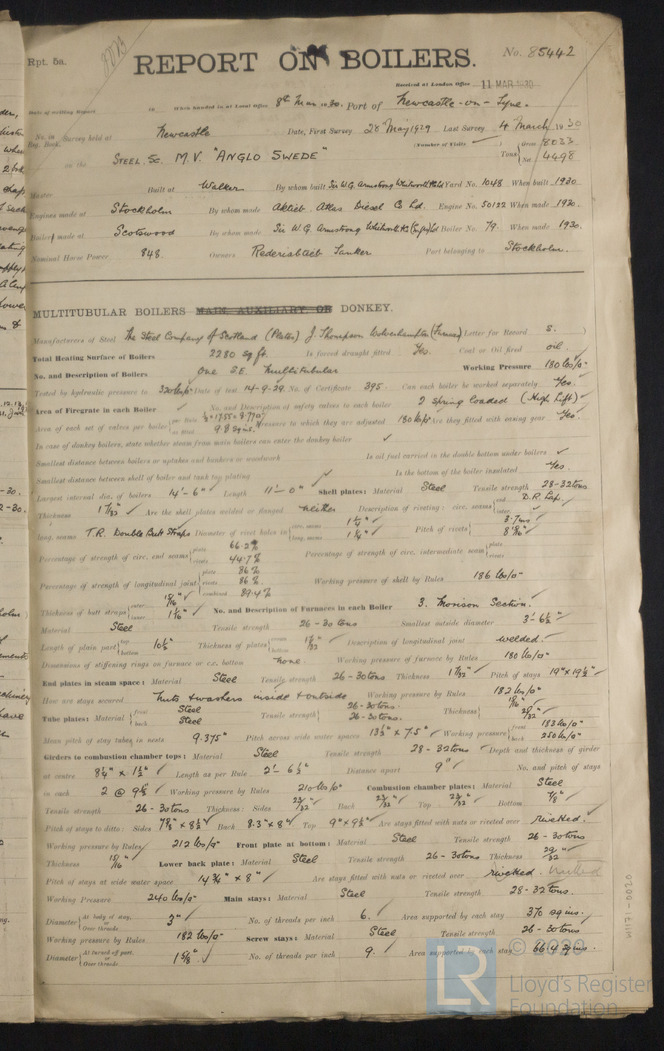 Rpt. 5a.
REPORT ON BOILERS.
No. 85442
Received at London Office 11 MAR 1930
Date of writing Report 19 When handed in at Local Office 8th Mar 1930 Port of Newcastle-on-Tyne.
No. in Reg. Book. Survey held at Newcastle Date, First Survey 28th May 1929 Last Survey 4 March 1930
(Number of Visits )
on the STEEL. SC. M.V. "ANGLO SWEDE" Tons Gross 8033 Net 4498
Master Built at Walker By whom built Sir W.G. Armstrong Whitworth Yard No. 1048 When built 1930
Engines made at Stockholm By whom made Aktieb Atlas Diesel Co Ld. Engine No. 50122 When made 1930.
Boilers made at Scotswood By whom made Sir W. G. Armstrong Whitworth Boiler No. 79. When made 1930.
Nominal Horse Power 848. Owners Rederiaktieb Tanker Port belonging to Stockholm.
MULTITUBULAR BOILERS MAIN, AUXILIARY OR DONKEY.
Manufacturers of Steel The Steel Company of Scotland (Plates) J. Thompson Wolverhampton (Furnaces) Letter for Record S.
Total Heating Surface of Boilers 2280 sq ft. Is forced draught fitted Yes. Coal or Oil fired oil.
No. and Description of Boilers One S.E. Multitubular Working Pressure 180 lbs/□"
Tested by hydraulic pressure to 320 lbs/□" Date of test 14-9-29 No. of Certificate 395 Can each boiler be worked separately Yes.
Area of Firegrate in each Boiler No. and Description of safety valves to each boiler 2 Spring loaded (High Lift)
Area of each set of valves per boiler per Rule as fitted 9.8 sq ins. Pressure to which they are adjusted 180 lbs/□" Are they fitted with easing gear Yes.
In case of donkey boilers, state whether steam from main boilers can enter the donkey boiler
Smallest distance between boilers or uptakes and bunkers or woodwork Is oil fuel carried in the double bottom under boilers
Smallest distance between shell of boiler and tank top plating Is the bottom of the boiler insulated Yes
Largest internal dia. of boilers 14'-6" Length 11'-0" Shell plates: Material Steel Tensile strength 28-32 tons
Thickness 1 7/32 Are the shell plates welded or flanged neither Description of riveting: circ. seams end D.R. Lap. inter
long. seams T.R. Double Butt Straps Diameter of rivet holes in circ. seams 1 1/4" long. seams 1 1/4" Pitch of rivets 3.7 ins 8 3/16"
Percentage of strength of circ. end seams plate 66.2% rivets 44.7% Percentage of strength of circ. intermediate seam plate rivets
Percentage of strength of longitudinal joint plate 86% rivets 86% combined 89.4% Working pressure of shell by Rules 186 lbs/□"
Thickness of butt straps outer 15/16" inner 1 1/16" No. and Description of Furnaces in each Boiler 3. Morison Section.
Material Steel Tensile strength 26-30 tons Smallest outside diameter 3'-6 1/2"
Length of plain part top bottom 10 1/2" Thickness of plates crown bottom 17/32" Description of longitudinal joint welded.
Dimensions of stiffening rings on furnace or c.c. bottom none. Working pressure of furnace by Rules 180 lbs/□"
End plates in steam space: Material Steel Tensile strength 26-30 tons Thickness 1 7/32" Pitch of stays 19" x 19 1/2"
How are stays secured Nuts & washers inside & outside Working pressure by Rules 182 lbs/□"
Tube plates: Material front Steel back Steel Tensile strength 26-30 tons. 26-30 tons. Thickness 15/16" 29/32"
Mean pitch of stay tubes in nests 9.375" Pitch across wide water spaces 13 1/2" x 7.5" Working pressure front 183 lbs/□" back 250 lbs/□"
Girders to combustion chamber tops: Material Steel Tensile strength 28-32 tons Depth and thickness of girder
at centre 8 1/4" x 1 1/2" Length as per Rule 2'-6 1/2" Distance apart 9" No. and pitch of stays
in each 2 @ 9 1/2" Working pressure by Rules 210 lbs/□" Combustion chamber plates: Material Steel
Tensile strength 26-30 tons Thickness: Sides 23/32" Back 23/32" Top 23/32" Bottom 7/8"
Pitch of stays to ditto: Sides 7 5/8" x 8 1/2" Back 8.3" x 8" Top 9" x 9 1/2" Are stays fitted with nuts or riveted over rivetted.
Working pressure by Rules 212 lbs/□" Front plate at bottom: Material Steel Tensile strength 26-30 tons
Thickness 15/16" Lower back plate: Material Steel Tensile strength 26-30 tons Thickness 29/32"
Pitch of stays at wide water space 14 3/4" x 8" Are stays fitted with nuts or riveted over rivetted.
Working Pressure 240 lbs/□" Main stays: Material Steel Tensile strength 28-32 tons.
Diameter At body of stay, or Over threads 3" No. of threads per inch 6. Area supported by each stay 370 sq ins.
Working pressure by Rules 182 lbs/□" Screw stays: Material Steel Tensile strength 26-30 tons
Diameter At turned off part, or Over threads 1 5/8" No. of threads per inch 9. Area supported by each stay 66.4 sq ins.
© 2020
Lloyd's Register
Foundation